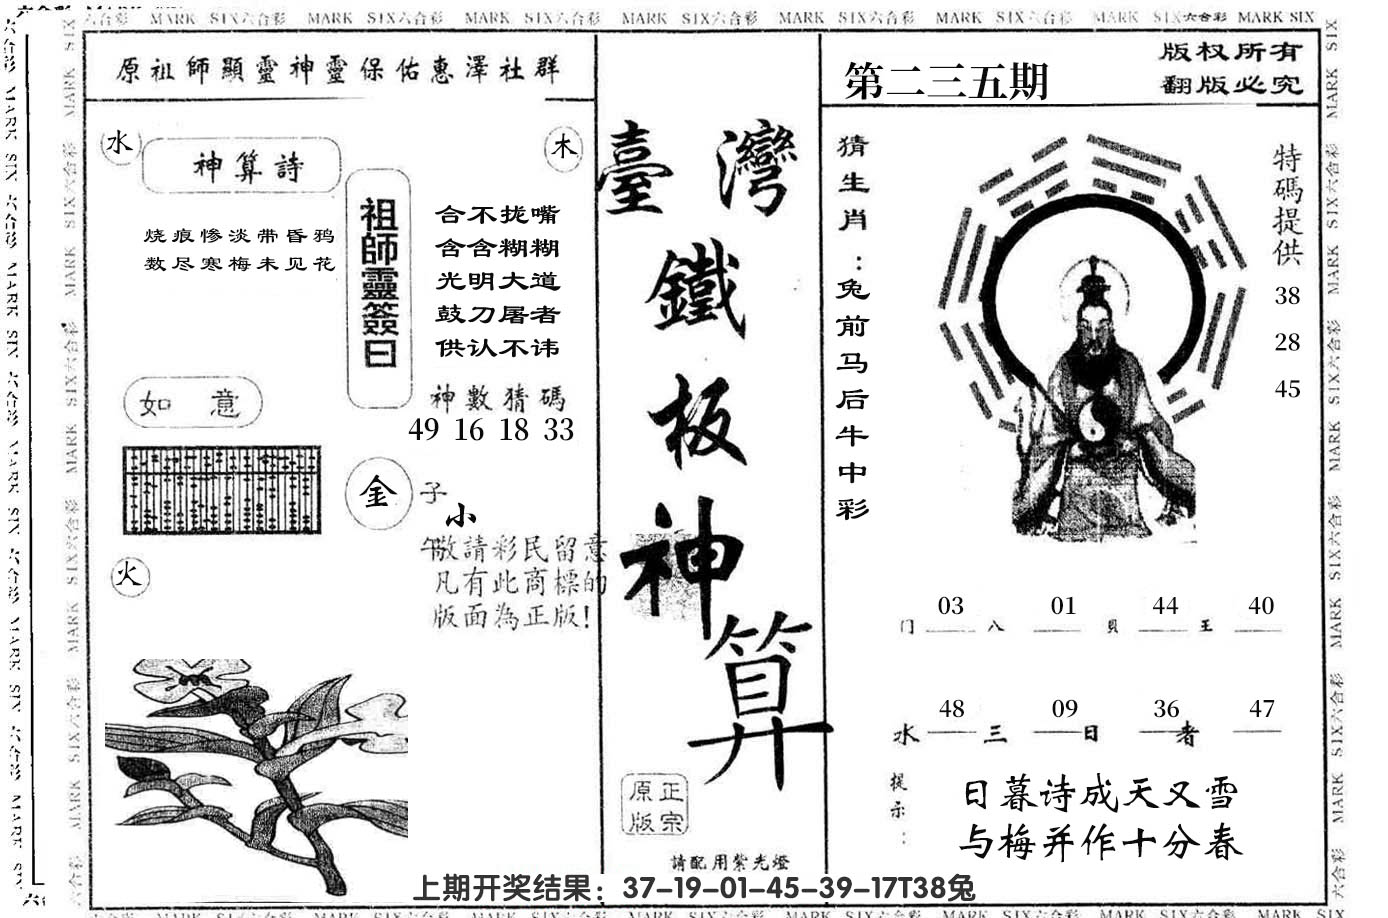 六合彩 MARK SIX六合彩 MARK SIX六合彩 MARK SIX六合彩 MARK SIX六合彩 MARK SIX六合彩 MARK SIX六合彩 MARK SIX六合彩 MARK SIX
原祖師顯靈神靈保佑惠澤社群
水
神算詩
木
烧痕惨淡带昏鸦
数尽寒梅未见花
祖師靈簽曰
合不拢嘴
含含糊糊
光明大道
鼓刀屠者
供认不讳
神數猜碼
49 16 18 33
如 意
金
子
小
午敬請彩民留意
凡有此商標的
版面為正版!
火
臺灣
鐵
板
神
算
原正
版宗
請配用紫光燈
第二三五期
版权所有
翻版必究
猜生肖:兔前马后牛中彩
特碼提供
38
28
45
03 01 44 40
门 八 貝 王
48 09 36 47
水 三 日 者
提示:
日暮诗成天又雪
与梅并作十分春
上期开奖结果：37-19-01-45-39-17T38兔